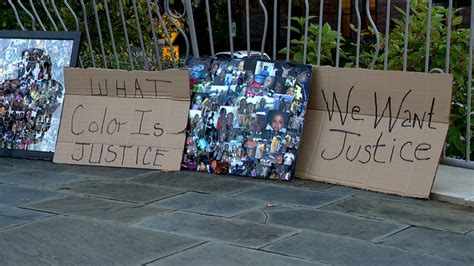 WHAT
Color Is
JUSTICE
We Want
Justice